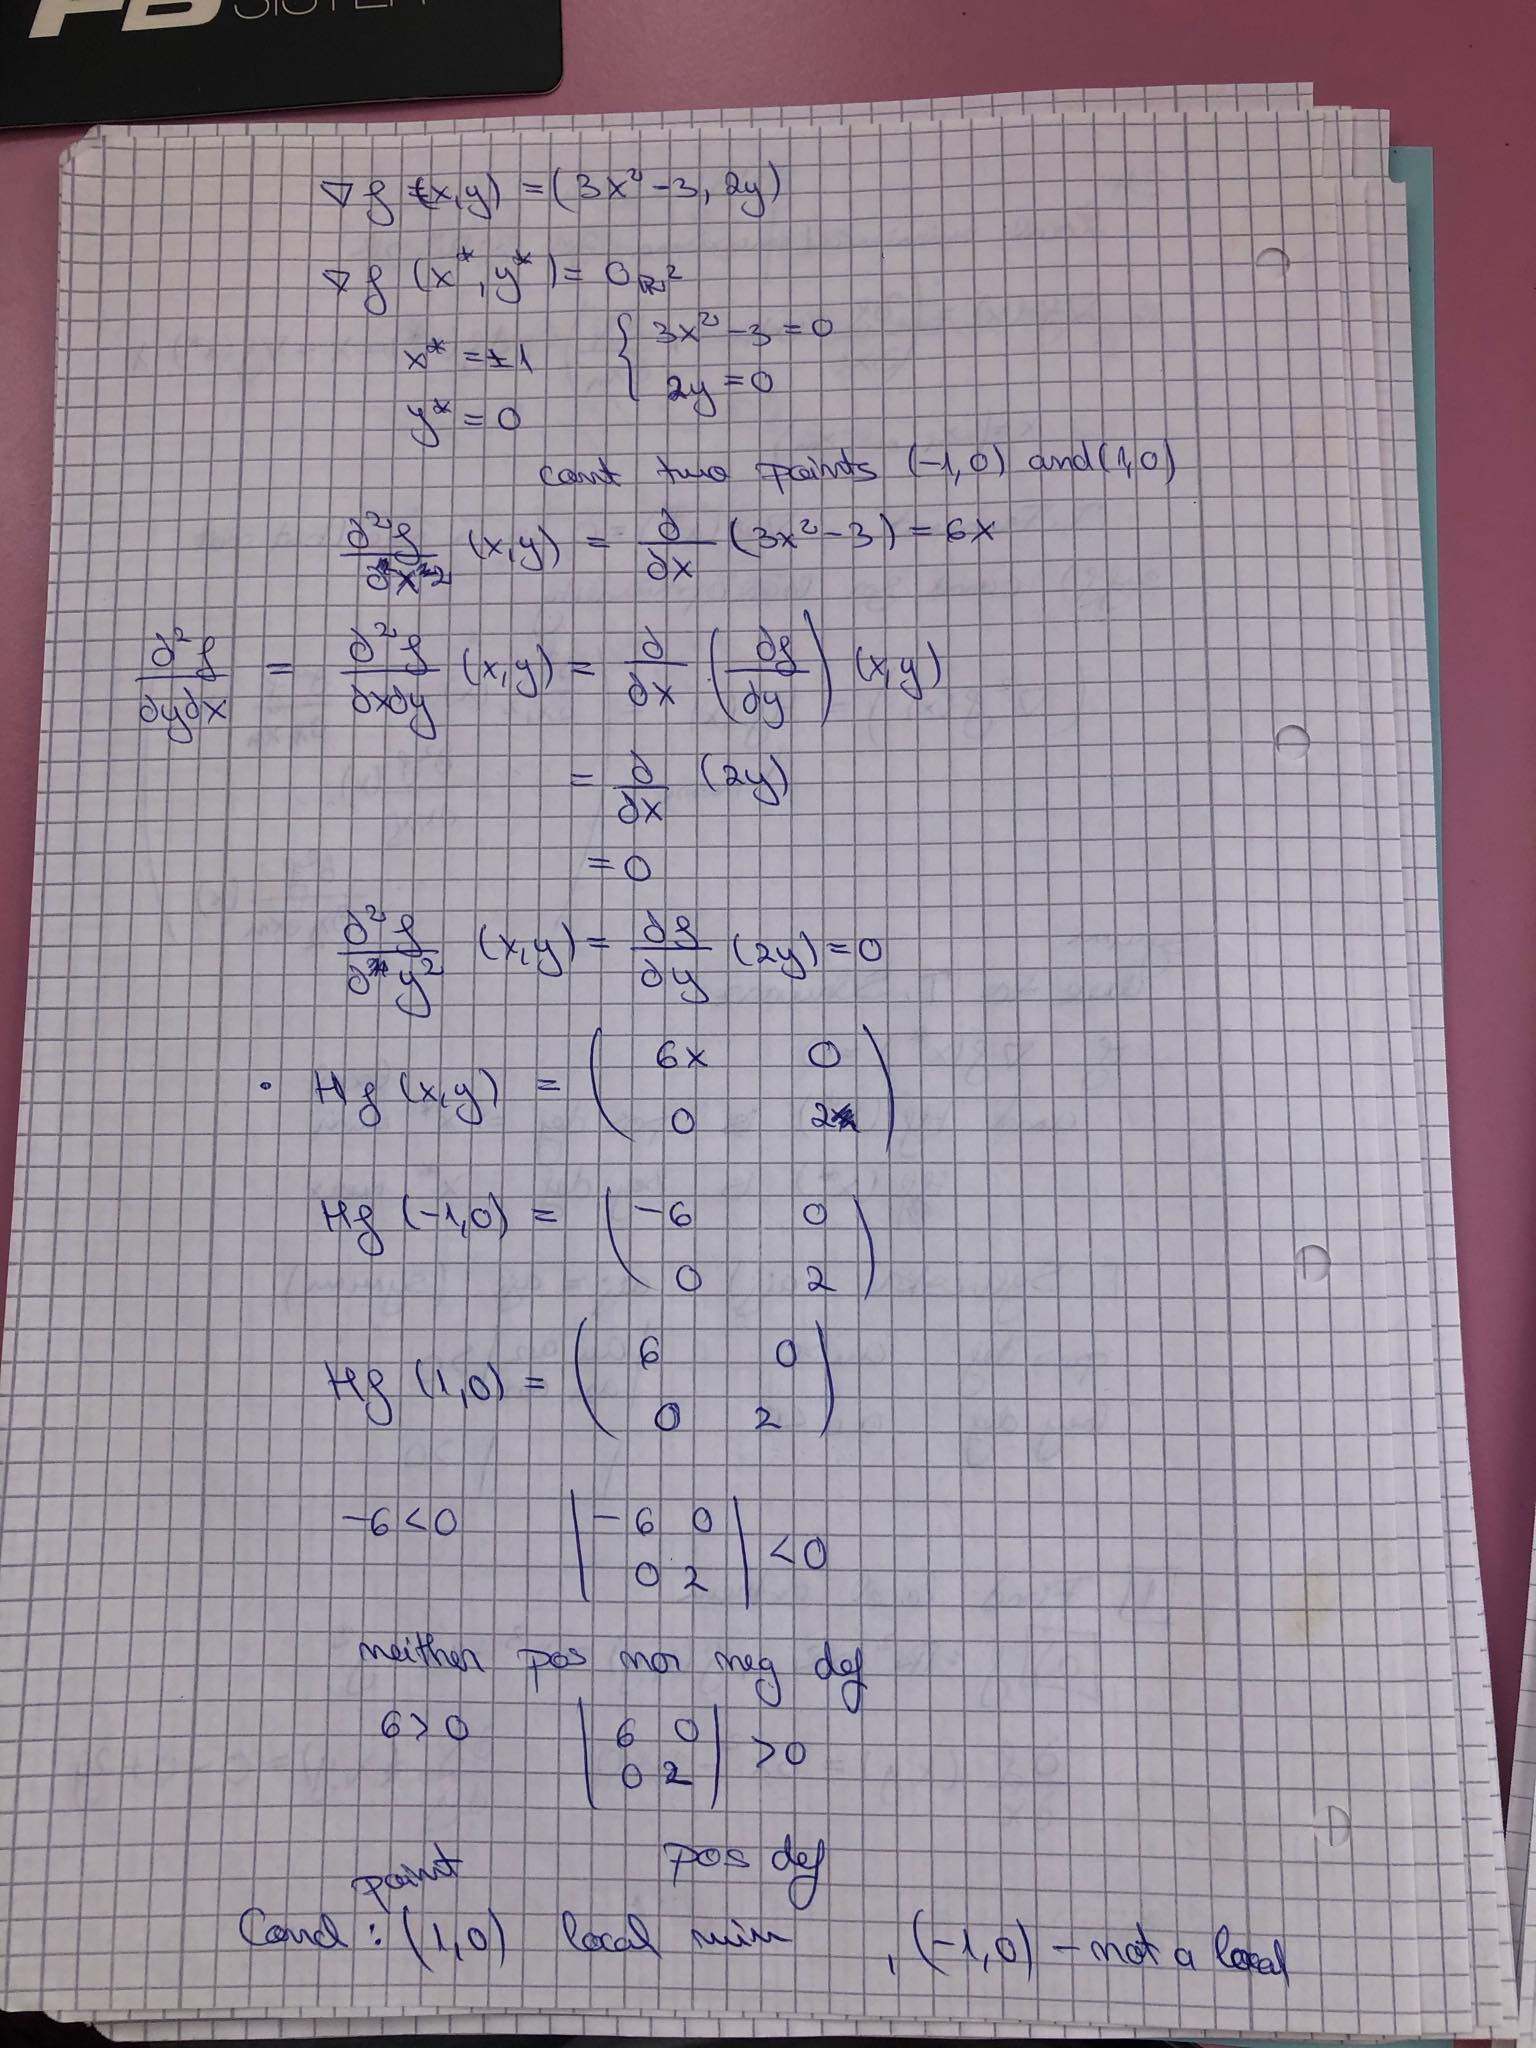 FB SISTEM
∇f (x,y) = (3x² - 3, 2y)
∇f (x*, y*) = 0ℝ²
x* = ±1 { 3x² - 3 = 0
y* = 0 2y = 0
cont two points (-1,0) and (1,0)
∂²f/∂x² (x,y) = ∂/∂x (3x² - 3) = 6x
∂²f/∂y∂x = ∂²f/∂x∂y (x,y) = ∂/∂x (∂f/∂y) (x,y)
= ∂/∂x (2y)
= 0
∂²f/∂y² (x,y) = ∂f/∂y (2y) = 0
• Hf (x,y) = ( 6x 0
0 2 )
Hf (-1,0) = ( -6 0
0 2 )
Hf (1,0) = ( 6 0
0 2 )
-6 < 0 | -6 0
0 2 | < 0
neither pos nor neg def
6 > 0 | 6 0
0 2 | > 0
pos def
point
Cond : (1,0) local min , (-1,0) - not a local